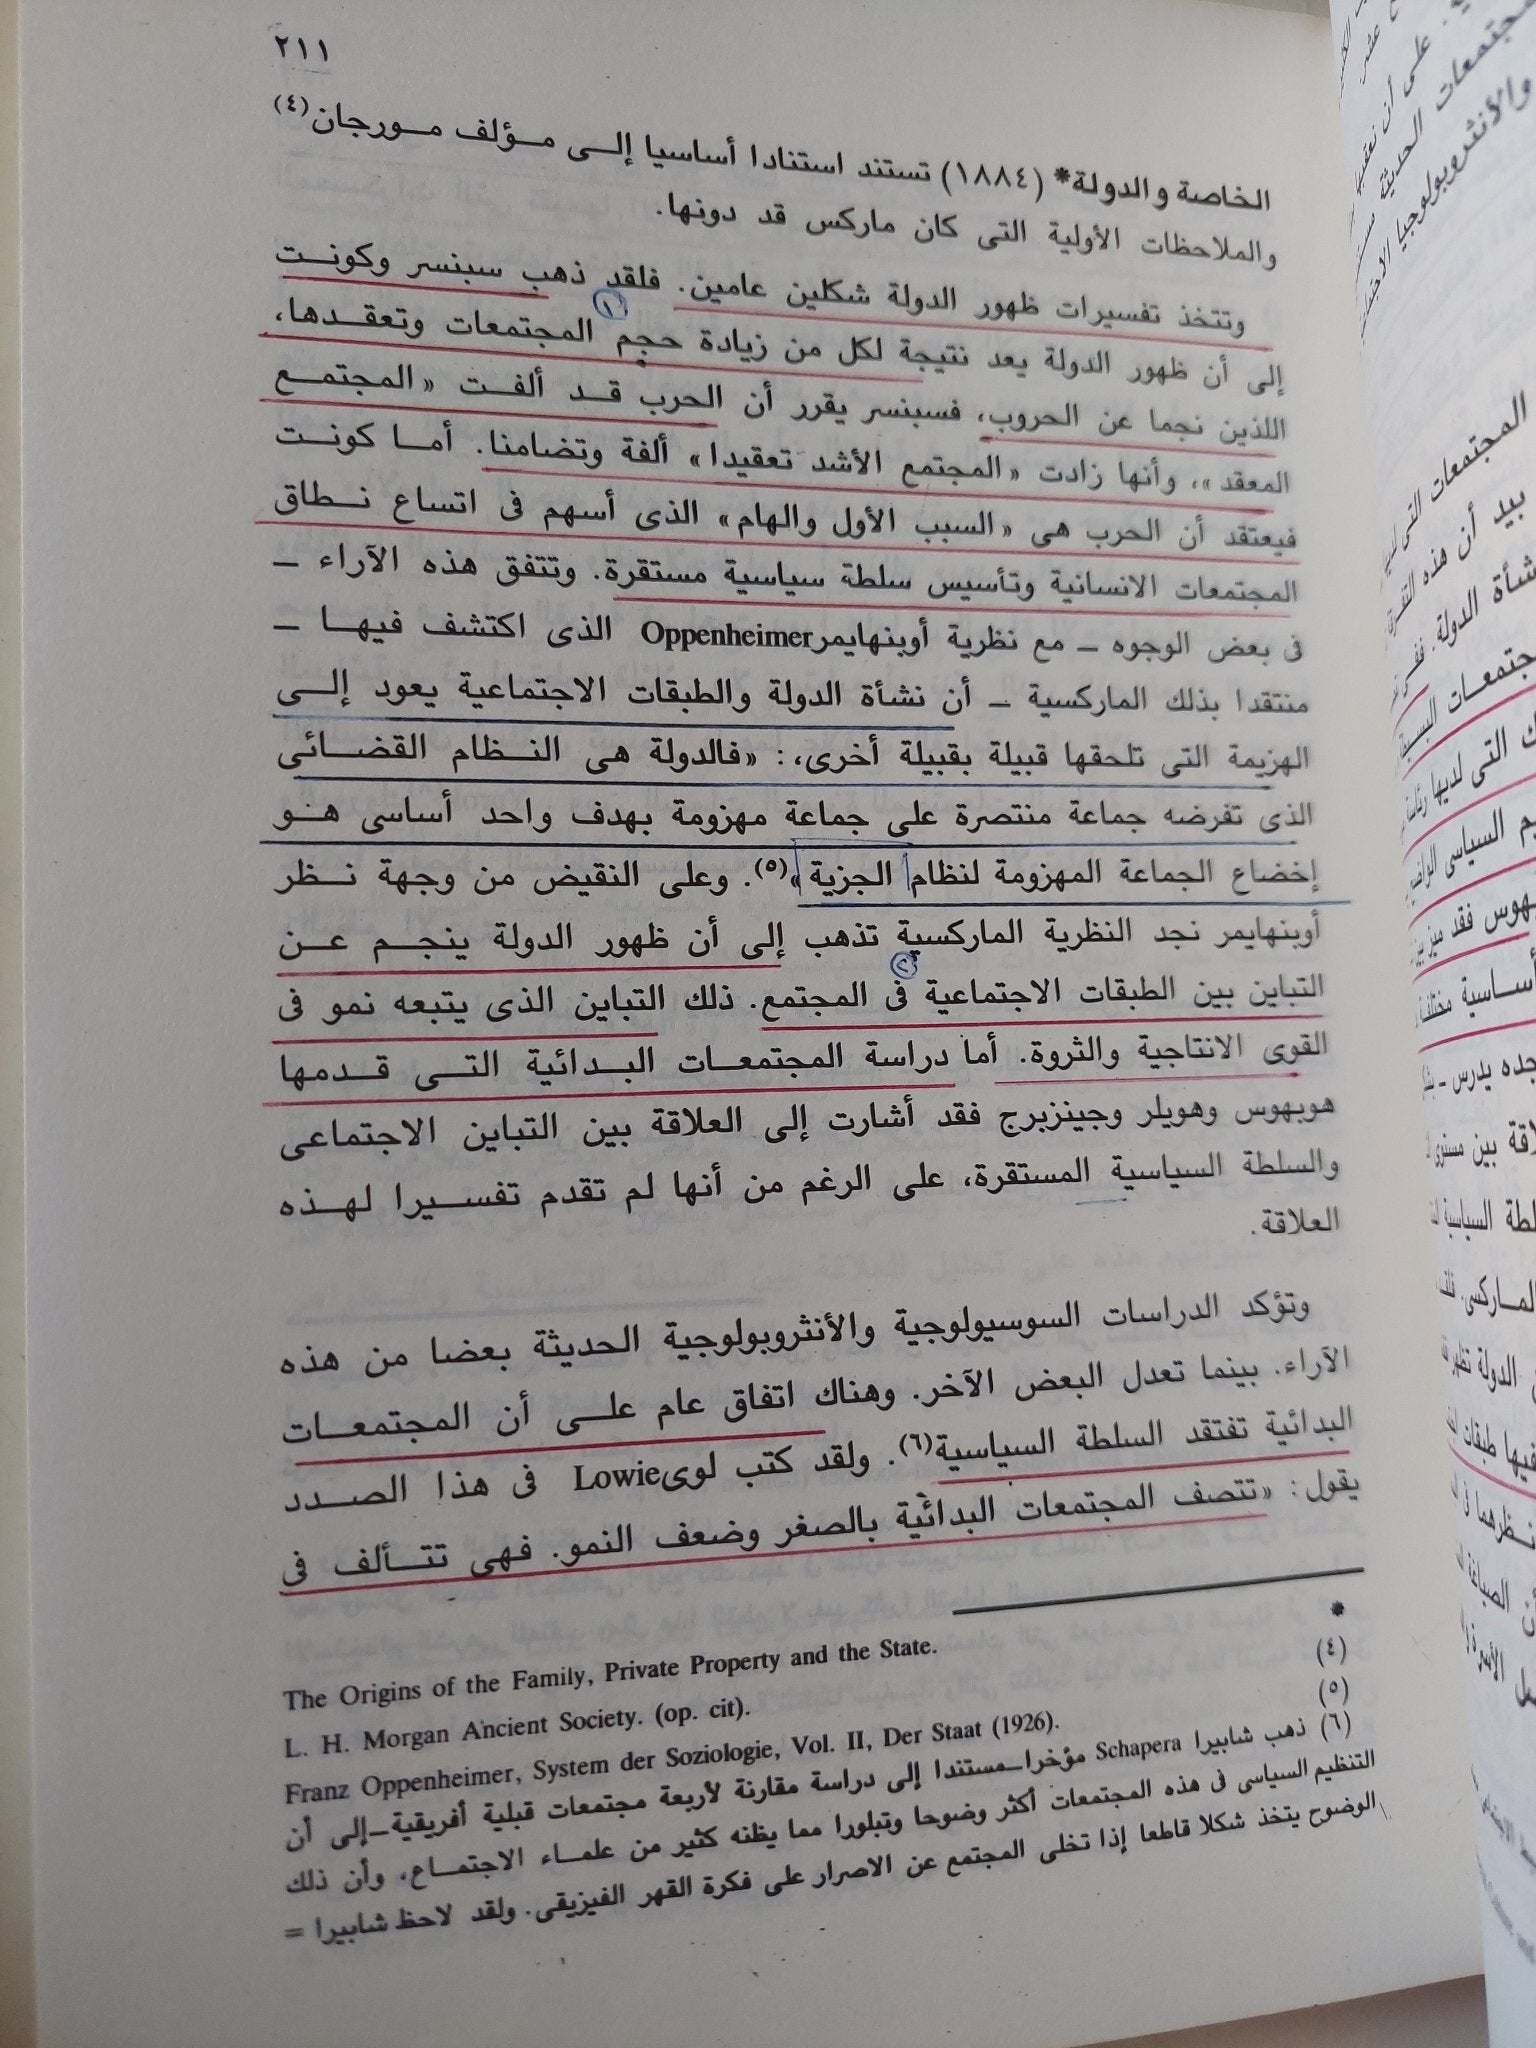 ٢١١
الخاصة والدولة* (١٨٨٤) تستند استنادا أساسيا إلى مؤلف مورجان(٤)
والملاحظات الأولية التى كان ماركس قد دونها.
وتتخذ تفسيرات ظهور الدولة شكلين عامين. فلقد ذهب سبنسر وكونت
١
إلى أن ظهور الدولة يعد نتيجة لكل من زيادة حجم المجتمعات وتعقدها،
اللذين نجما عن الحروب، فسبنسر يقرر أن الحرب قد ألفت «المجتمع
المعقد»، وأنها زادت «المجتمع الأشد تعقيدا» ألفة وتضامنا. أما كونت
فيعتقد أن الحرب هى «السبب الأول والهام» الذى أسهم فى اتساع نطاق
المجتمعات الانسانية وتأسيس سلطة سياسية مستقرة. وتتفق هذه الآراء –
فى بعض الوجوه – مع نظرية أوبنهايمر Oppenheimer الذى اكتشف فيها –
منتقدا بذلك الماركسية – أن نشأة الدولة والطبقات الاجتماعية يعود إلى
الهزيمة التى تلحقها قبيلة بقبيلة أخرى،: «فالدولة هى النظام القضائى
الذى تفرضه جماعة منتصرة على جماعة مهزومة بهدف واحد أساسى هو
إخضاع الجماعة المهزومة لنظام الجزية»(٥). وعلى النقيض من وجهة نظر
أوبنهايمر نجد النظرية الماركسية تذهب إلى أن ظهور الدولة ينجم عن
٢
التباين بين الطبقات الاجتماعية فى المجتمع. ذلك التباين الذى يتبعه نمو فى
القوى الانتاجية والثروة. أما دراسة المجتمعات البدائية التى قدمها
هوبهوس وهويلر وجينزبرج فقد أشارت إلى العلاقة بين التباين الاجتماعى
والسلطة السياسية المستقرة، على الرغم من أنها لم تقدم تفسيرا لهذه
العلاقة.
وتؤكد الدراسات السوسيولوجية والأنثروبولوجية الحديثة بعضا من هذه
الآراء. بينما تعدل البعض الآخر. وهناك اتفاق عام على أن المجتمعات
البدائية تفتقد السلطة السياسية(٦). ولقد كتب لوى Lowie فى هذا الصدد
يقول: «تتصف المجتمعات البدائية بالصغر وضعف النمو. فهى تتألف فى
* The Origins of the Family, Private Property and the State.
(٤) L. H. Morgan Ancient Society. (op. cit).
(٥) Franz Oppenheimer, System der Soziologie, Vol. II, Der Staat (1926).
(٦) ذهب شابيرا Schapera مؤخرا–مستندا إلى دراسة مقارنة لأربعة مجتمعات قبلية أفريقية–إلى أن
التنظيم السياسى فى هذه المجتمعات أكثر وضوحا وتبلورا مما يظنه كثير من علماء الاجتماع، وأن ذلك
الوضوح يتخذ شكلا قاطعا إذا تخلى المجتمع عن الاصرار على فكرة القهر الفيزيقى. ولقد لاحظ شابيرا =